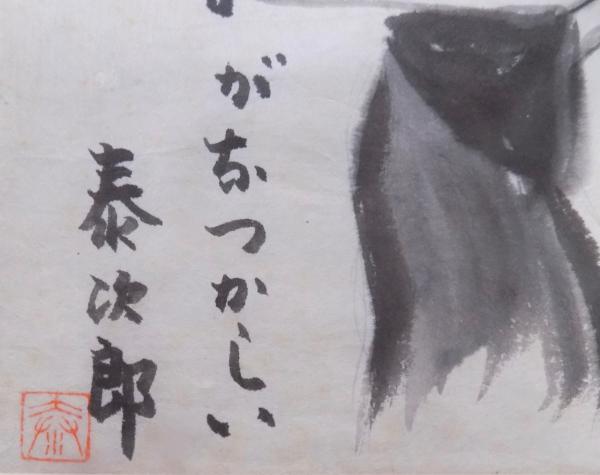 がなつかしい
泰次郎
泰